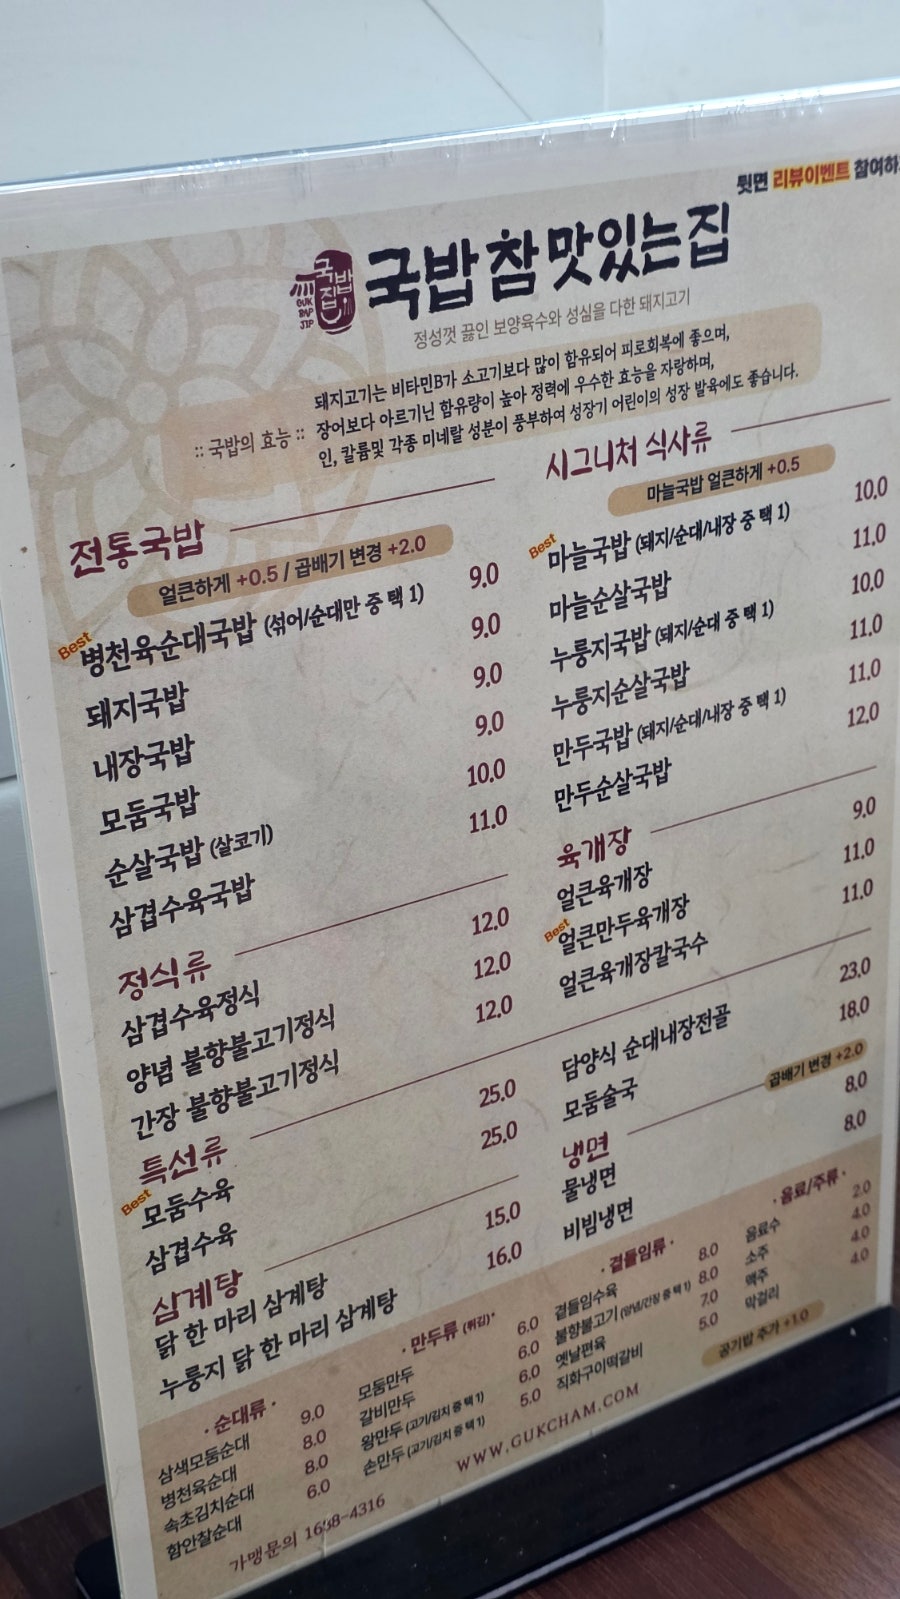 뒷면 리뷰이벤트 참여하
국밥집
GUK
BAP
JIP
국밥 참 맛있는 집
정성껏 끓인 보양육수와 성심을 다한 돼지고기
:: 국밥의 효능 ::
돼지고기는 비타민B가 소고기보다 많이 함유되어 피로회복에 좋으며,
장어보다 아르기닌 함유량이 높아 정력에 우수한 효능을 자랑하며,
인, 칼륨및 각종 미네랄 성분이 풍부하여 성장기 어린이의 성장 발육에도 좋습니다.
전통국밥
얼큰하게 +0.5 / 곱배기 변경 +2.0
Best 병천육순대국밥 (섞어/순대만 중 택 1) 9.0
돼지국밥 9.0
내장국밥 9.0
모둠국밥 9.0
순살국밥 (살코기) 10.0
삼겹수육국밥 11.0
정식류
삼겹수육정식 12.0
양념 불향불고기정식 12.0
간장 불향불고기정식 12.0
특선류
Best 모둠수육 25.0
삼겹수육 25.0
삼계탕
닭 한 마리 삼계탕 15.0
누룽지 닭 한 마리 삼계탕 16.0
시그니처 식사류
마늘국밥 얼큰하게 +0.5
Best 마늘국밥 (돼지/순대/내장 중 택 1) 10.0
마늘순살국밥 11.0
누룽지국밥 (돼지/순대 중 택 1) 10.0
누룽지순살국밥 11.0
만두국밥 (돼지/순대/내장 중 택 1) 11.0
만두순살국밥 12.0
육개장
얼큰육개장 9.0
Best 얼큰만두육개장 11.0
얼큰육개장칼국수 11.0
담양식 순대내장전골 23.0
모둠술국 18.0
냉면
곱배기 변경 +2.0
물냉면 8.0
비빔냉면 8.0
· 순대류 ·
삼색모둠순대 9.0
병천육순대 8.0
속초김치순대 8.0
함안찰순대 6.0
· 만두류 (튀김) ·
모둠만두 6.0
갈비만두 6.0
왕만두 (고기/김치 중 택 1) 6.0
손만두 (고기/김치 중 택 1) 5.0
· 곁들임류 ·
곁들임수육 8.0
불향불고기 (양념/간장 중 택 1) 8.0
옛날편육 7.0
직화구이떡갈비 5.0
· 음료/주류 ·
음료수 2.0
소주 4.0
맥주 4.0
막걸리 4.0
공기밥 추가 +1.0
가맹문의 1688-4316
WWW.GUKCHAM.COM